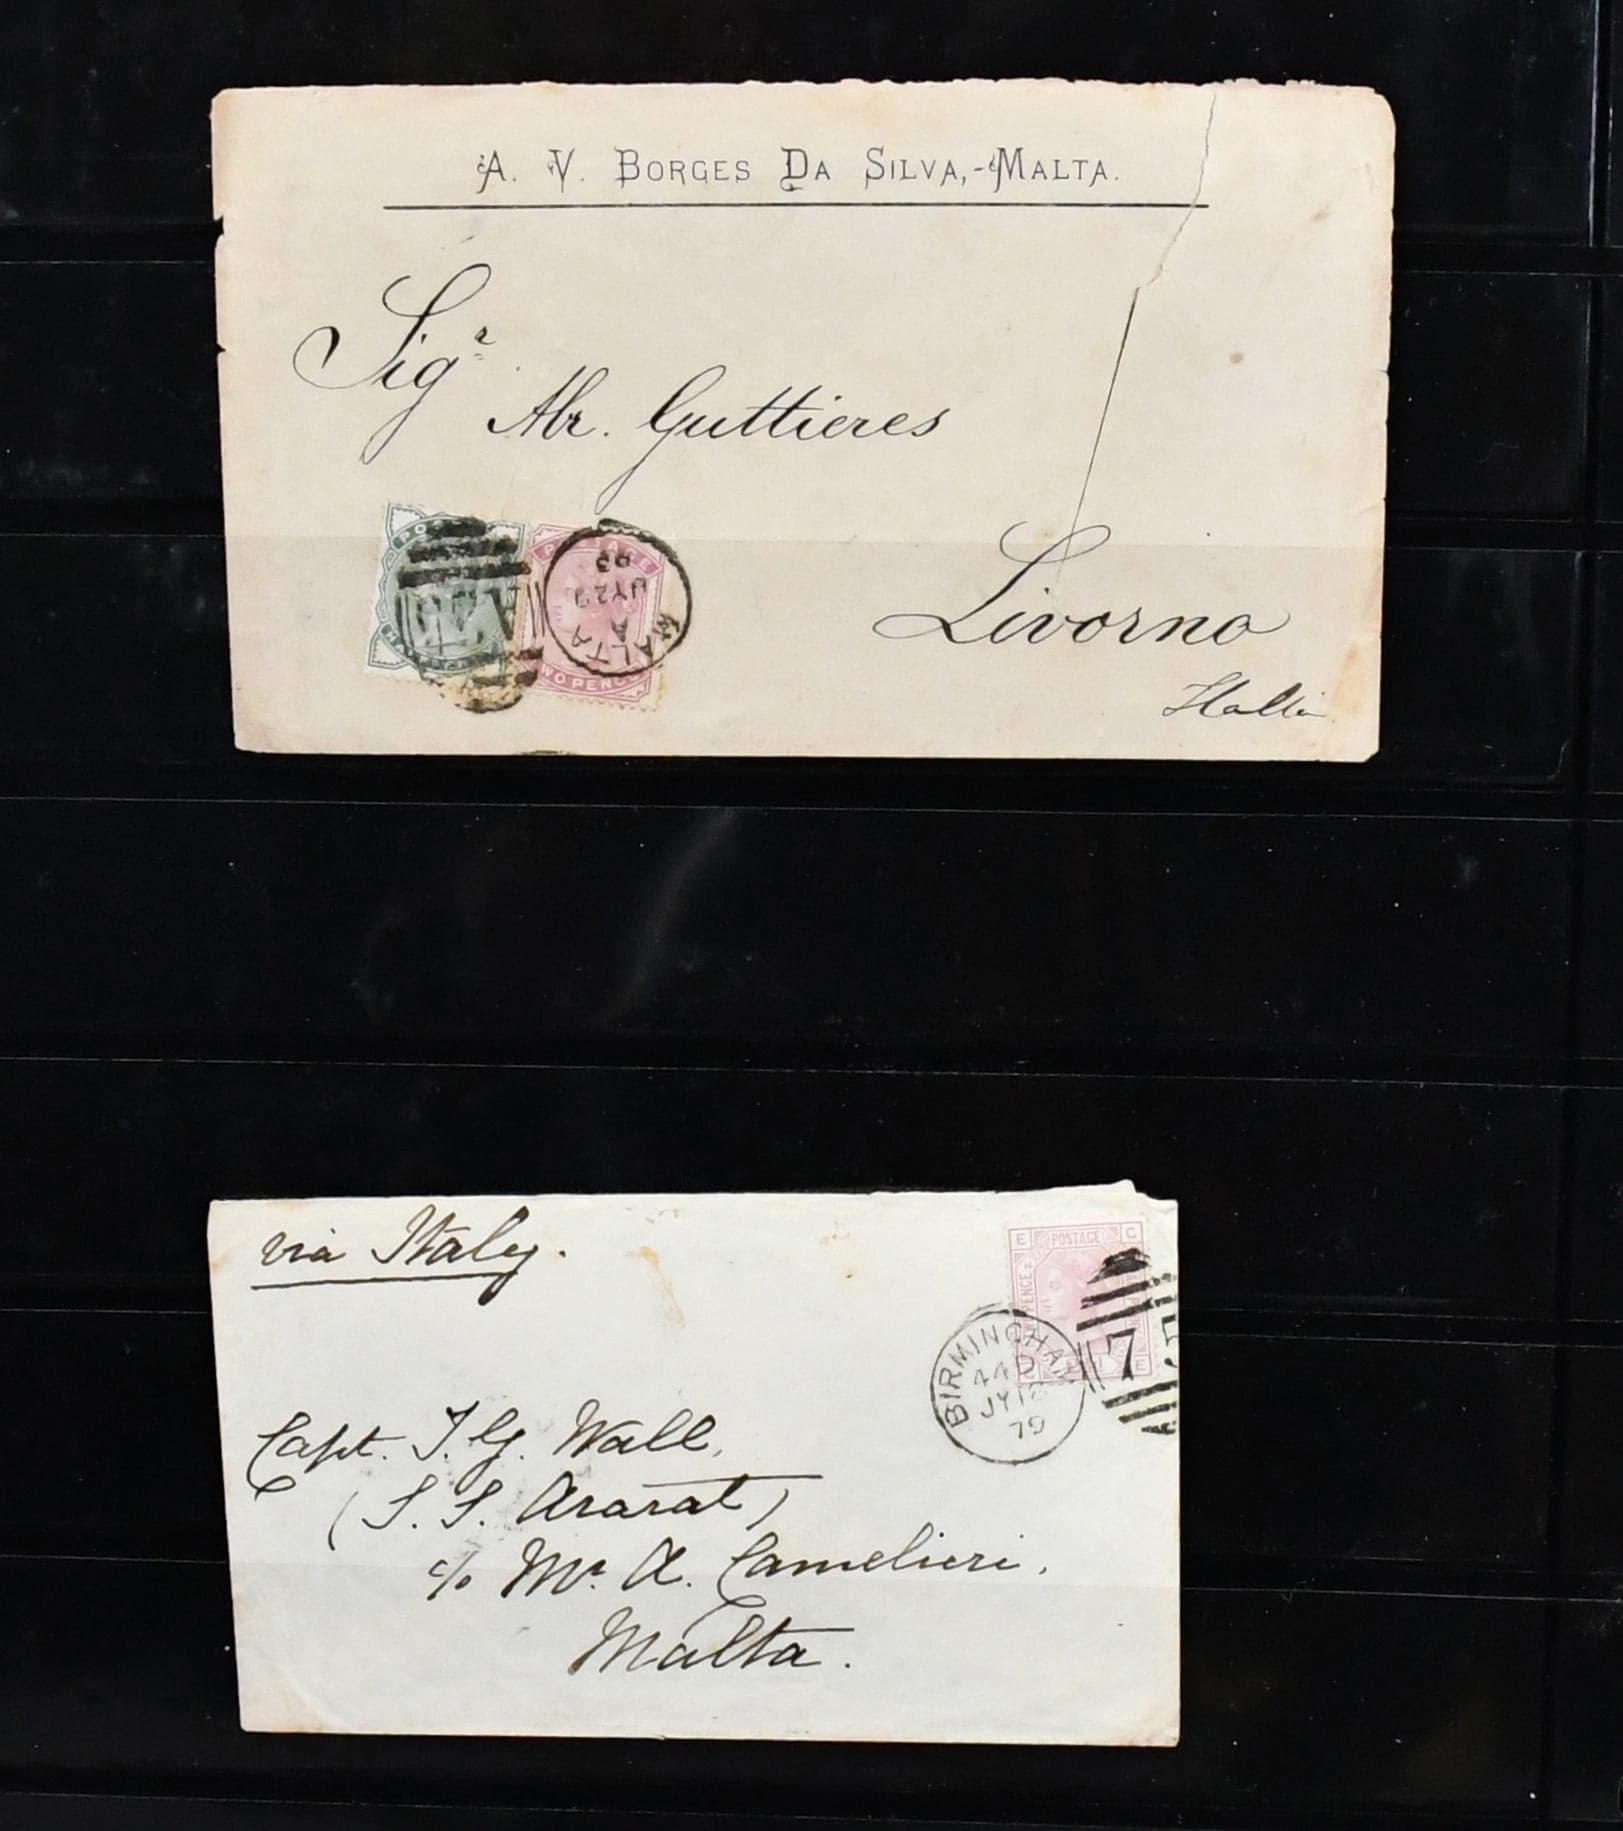 A. V. BORGES DA SILVA,-MALTA.
Sigr
Abr. Guttieres
Livorno
Italia
POSTAGE
TWO PENCE
MALTA
A
JY29
83
via Italy.
E POSTAGE C
BIRMINGHAM
44D
JY18
79
75
Capt. J. G. Wall,
(S. S. Ararat)
c/o Mr. A. Camelieri,
Malta.